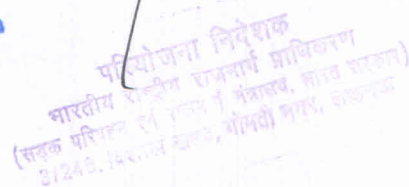 परियोजना निदेशक
भारतीय राष्ट्रीय राजमार्ग प्राधिकरण
(सड़क परिवहन एवं राजमार्ग मंत्रालय, भारत सरकार)
खण्ड, गोमती नगर, लखनऊ